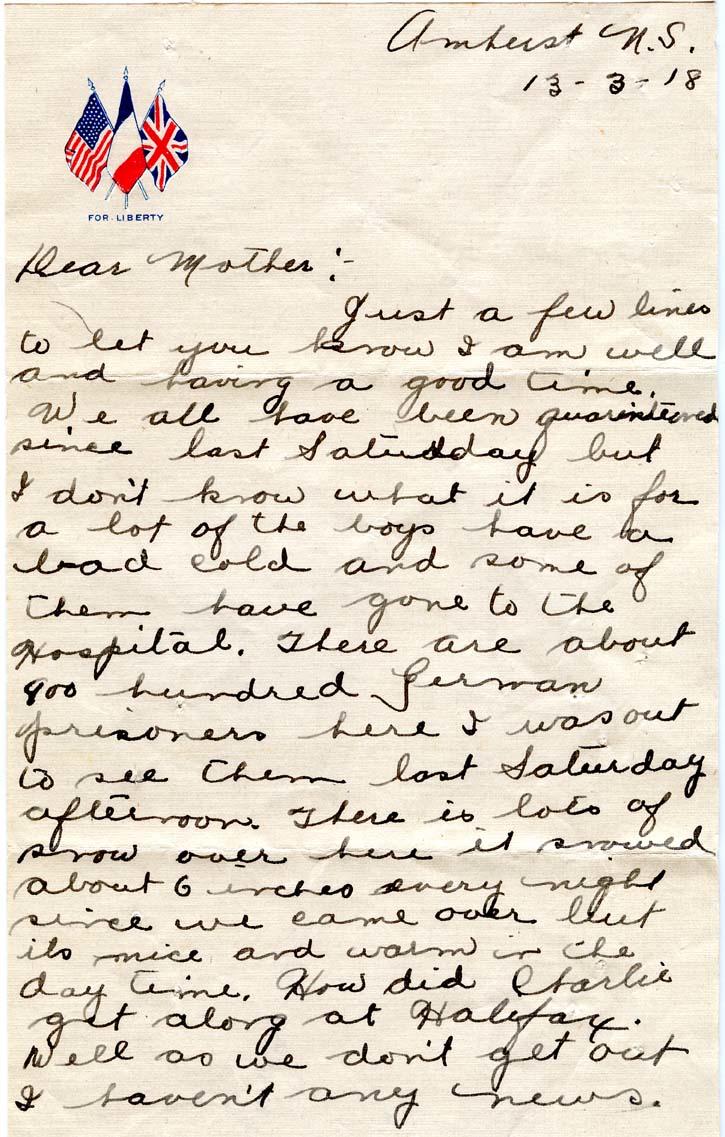 Amherst N.S.
13-3-18
FOR LIBERTY
Dear Mother:-
Just a few lines
to let you know I am well
and having a good time.
We all have been quarinteened
since last Saturday but
I don't know what it is for
a lot of the boys have a
bad cold and some of
them have gone to the
Hospital. There are about
900 hundred German
prisoners here I was out
to see them last Saturday
afternoon. There is lots of
snow over here it snowed
about 6 inches every night
since we came over but
its nice and warm in the
day time. How did Charlie
get along at Halifax.
Well as we don't get out
I haven't any news.